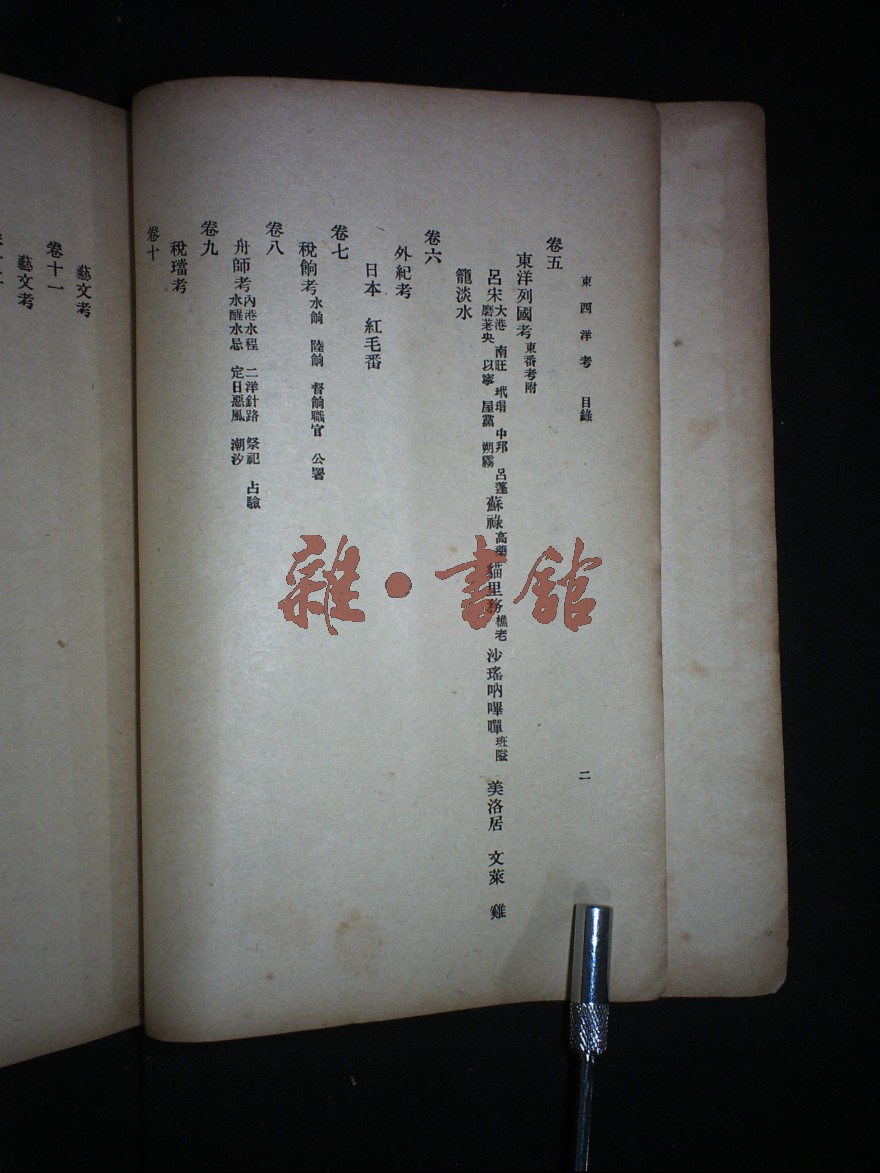 東西洋考 目錄 二
卷五
東洋列國考東番考附
呂宋大港 南旺 玳瑁 中邦 呂蓬 磨荖央 以寧 屋黨 朔霧 蘇祿高藥 貓里務樵老 沙瑤吶嗶嘽班隘 美洛居 文萊 雞
籠淡水
卷六
外紀考
日本 紅毛番
卷七
稅餉考水餉 陸餉 督餉職官 公署
卷八
稅璫考
卷九
舟師考內港水程 二洋針路 祭祀 占驗 水醒水忌 定日惡風 潮汐
卷十
卷十一
藝文考
藝文考
雜·書館